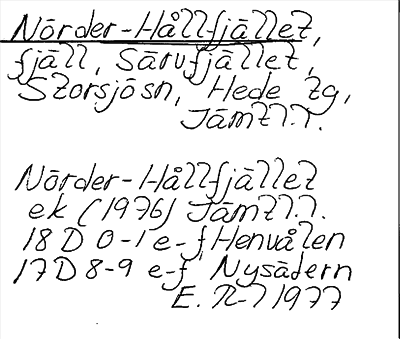 Nörder-Hållfjället,
fjäll, Särvfjället,
Storsjön, Hede tg,
Jämtl.l.
Nörder-Hållfjället
ek (1976) Jämtl.l.
18 D 0-1 e-f Henvålen
17 D 8-9 e-f Nysätern
E. R-l 1977